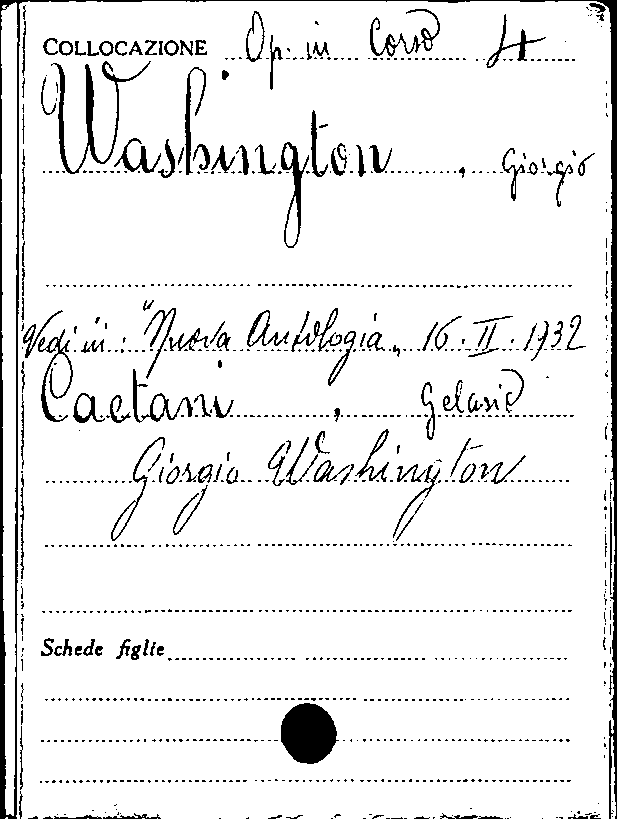 COLLOCAZIONE Op. in Corso 4
Washington, Giorgio
Vedi in: "Nuova Antologia„ 16.II.1932
Caetani, Gelasio
Giorgio Washington
Schede figlie